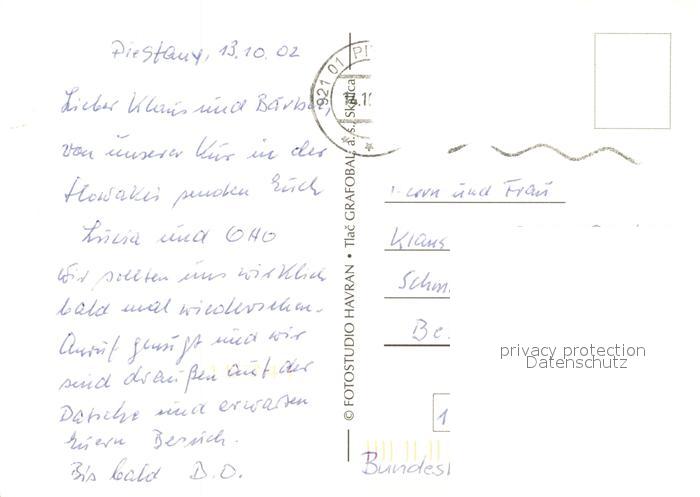 Piešťany, 13.10.02
Lieber Klaus und Bärbel,
von unserer Kur in der
Slowakei senden Euch
Lucia und Otto
Wir sollten uns wirklich
bald mal wiedersehen.
Anruf genügt und wir
sind draußen auf der
Datsche und erwarten
Euern Besuch.
Bis bald D.O.
921 01 PI
© FOTOSTUDIO HAVRAN • Tlač GRAFOBAL a. s. Skalica
Herrn und Frau
Klaus
Schm
Be
1
Bundes
privacy protection
Datenschutz